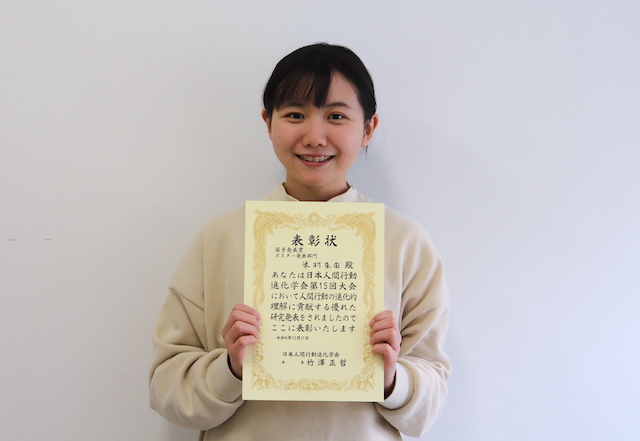 表彰状
若手発表賞
ポスター発表部門
米村朱由 殿
あなたは日本人間行動
進化学会第15回大会
において人間行動の進化的
理解に貢献する優れた
研究発表をされましたので
ここに表彰いたします
令和4年12月11日
日本人間行動進化学会
会 長 竹澤正哲